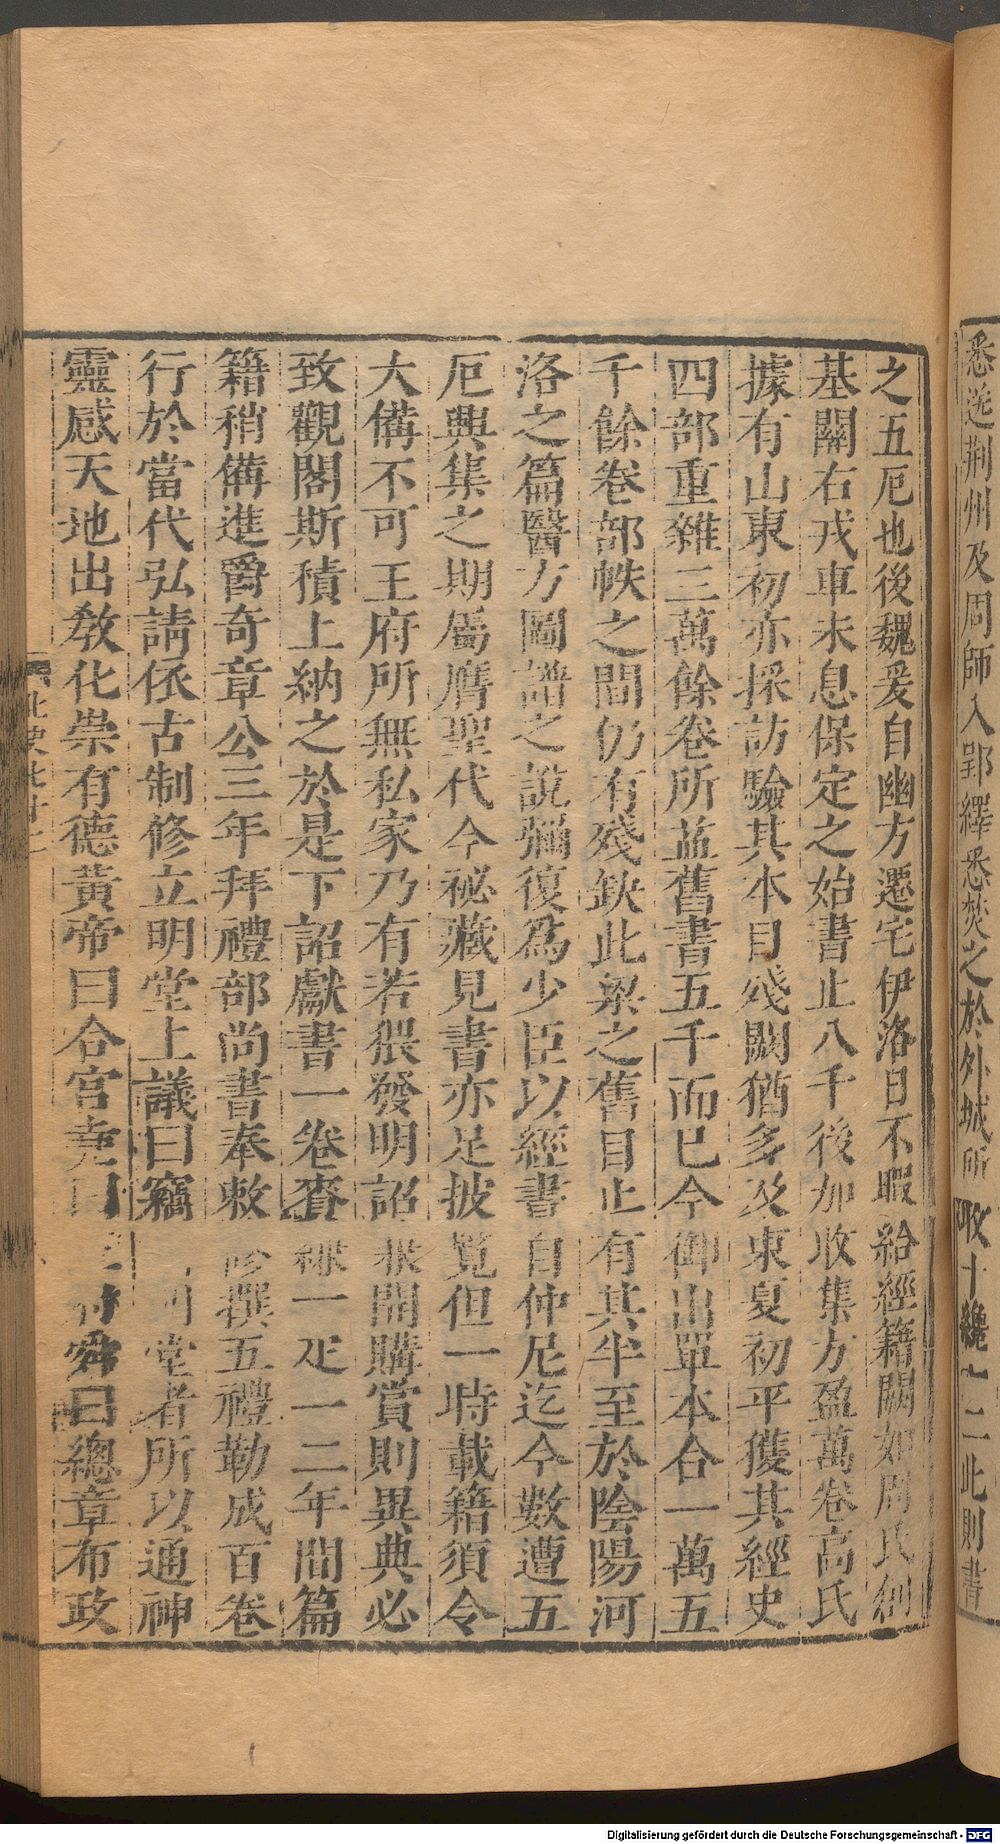 悉送荆州及周師入郢繹悉焚之於外城所收十纔一二此則書
之五厄也後魏爰自幽方遷宅伊洛日不暇給經籍闕如周氏創
基關右戎車未息保定之始書止八千後加收集方盈萬卷高氏
據有山東初亦採訪驗其本目殘闕猶多及東夏初平獲其經史
四部重雜三萬餘卷所益舊書五千而已今御出單本合一萬五
千餘卷部帙之間仍有殘缺此梁之舊目止有其半至於陰陽河
洛之篇醫方圖譜之說彌復為少臣以經書自仲尼迄今數遭五
厄典集之期屬膺聖代今祕藏見書亦足披覽但一時載籍須令
大備不可王府所無私家乃有若猥發明詔兼開購賞則異典必
致觀閣斯積上納之於是下詔獻書一卷賚縑一疋一二年間篇
籍稍備進爵奇章公三年拜禮部尚書奉敕修撰五禮勒成百卷
行於當代弘請依古制修立明堂上議曰竊 明堂者所以通神
靈感天地出教化崇有德黃帝曰合宮堯曰五府舜曰總章布政
北史
Digitalisierung gefördert durch die Deutsche Forschungsgemeinschaft - DFG